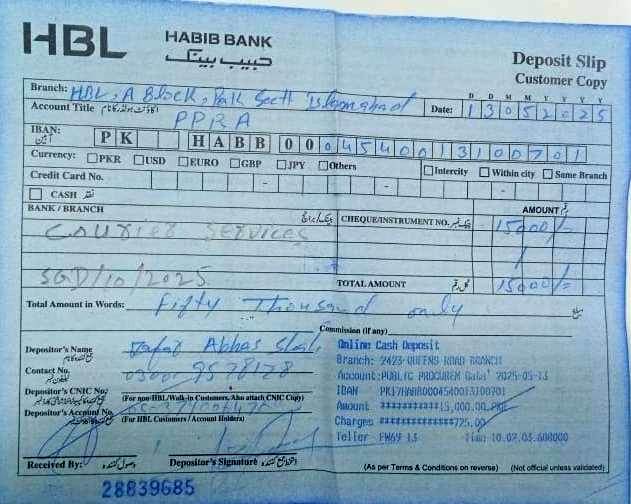 HBL HABIB BANK
حبیب بینک
Deposit Slip
Customer Copy
Branch: HBL, A Block, Pak Sectt Islamabad
Account Title PPRA
D D M M Y Y Y Y
Date: 1 3 0 5 2 0 2 5
IBAN: PK HABB 00 0 4 5 4 0 0 1 3 1 0 0 7 0 1
Currency: PKR USD EURO GBP JPY Others
Intercity Within city Same Branch
Credit Card No.
CASH نقد
BANK / BRANCH CHEQUE/INSTRUMENT NO. AMOUNT رقم
Courier Services 15000/-
SGD/10/2025
TOTAL AMOUNT کل رقم 15000/=
Total Amount in Words: Fifty Thousand only
Commission (If any)
Depositor's Name Abbas
Contact No. 9578178
Depositor's CNIC No:
(For non-HBL/Walk-in Customers, Also attach CNIC Copy)
Depositor's Account No.
(For HBL Customers / Account Holders)
Online Cash Deposit
Branch: 2423-QUEENS ROAD BRANCH
Account:PUBLIC PROCUREM Date: 2025-05-13
IBAN
Amount ***********15,000.00
Charges **************725.00
Teller 10.02.03.600000
Received By: وصول کنندہ Depositor's Signature
(As per Terms & Conditions on reverse) (Not official unless validated)
28839685